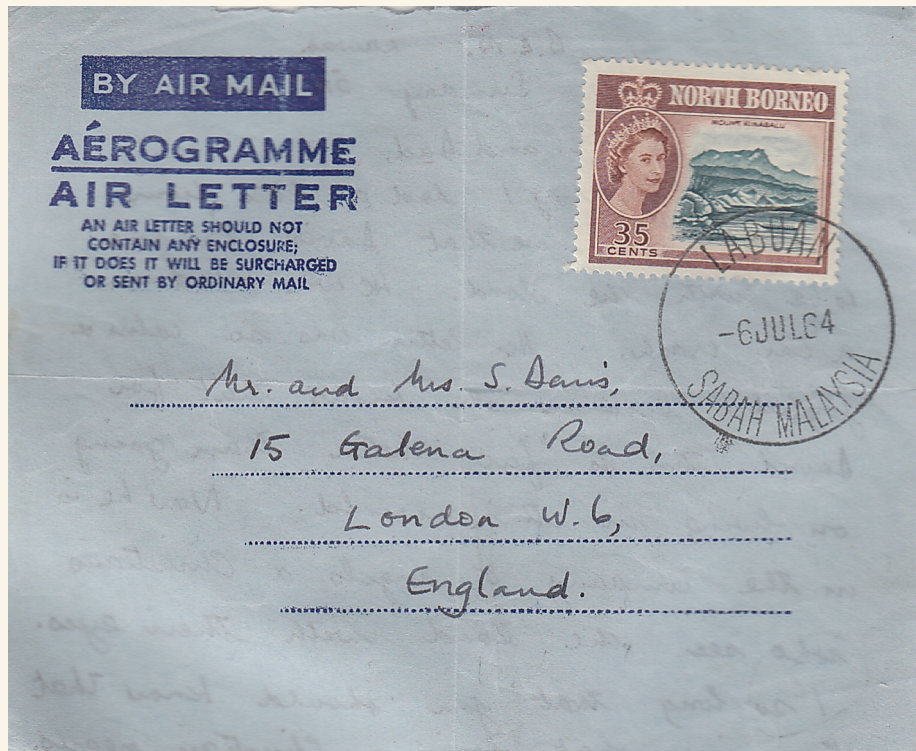 BY AIR MAIL
AÉROGRAMME
AIR LETTER
AN AIR LETTER SHOULD NOT
CONTAIN ANY ENCLOSURE;
IF IT DOES IT WILL BE SURCHARGED
OR SENT BY ORDINARY MAIL
NORTH BORNEO
MOUNT KINABALU
35
CENTS
LABUAN
-6 JUL 64
SABAH MALAYSIA
Mr. and Mrs. S. Davis,
15 Galena Road,
London W.6,
England.